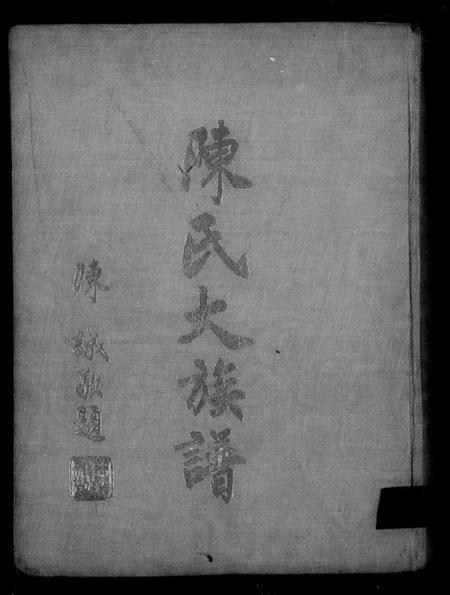 陳氏大族譜
陳 誠題